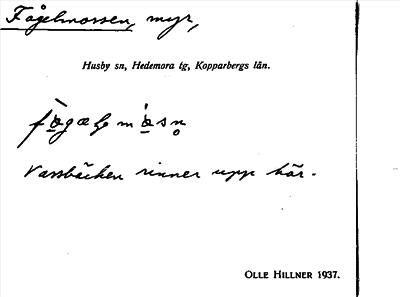 Fågelmossen, myr,
Husby sn, Hedemora tg, Kopparbergs län.
Vassbäcken rinner upp här.
OLLE HILLNER 1937.